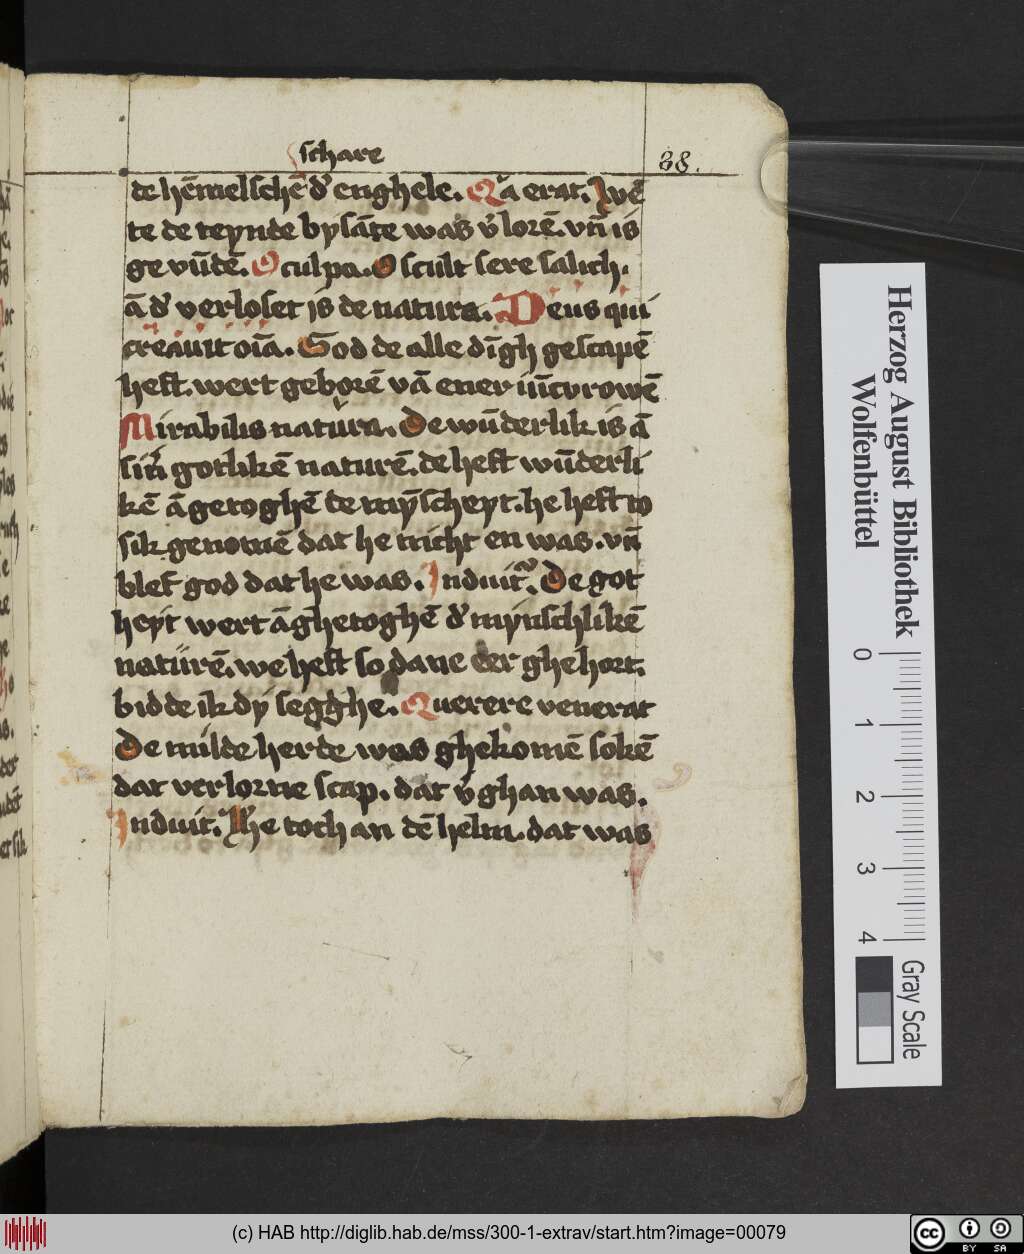 schare
38.
de hēmelschē d' enghele. Qa erat. Wē
te de teynde bysāte was v'lorē. vn̄ is
ge vūdē. O culpa. O scult sere salich.
ā d' verloset is de natura. Deus qui
creauit oīa. God de alle dīgh gescapē
heft. wert geborē vā ener iūcvrowē
Mirabilis natura. De wūderlik is ā
sin̄ gotlikē naturē. de heft wūderli
kē ā getoghē de mȳscheyt. he heft to
sik genomē dat he nicht en was. vn̄
blef god dat he was. Induit. De got
heyt wert ā ghetoghē d' mynschlikē
naturē. we heft so dane eer ghehort.
bidde ik dy segghe. Querere venerat
De milde herde was ghekomē sokē
dat verlorne scap. dat v'ghan was.
Induit. He toch an dē helm. dat was
Herzog August Bibliothek
Wolfenbüttel
0 1 2 3 4
Gray Scale
(c) HAB http://diglib.hab.de/mss/300-1-extrav/start.htm?image=00079
cc BY SA